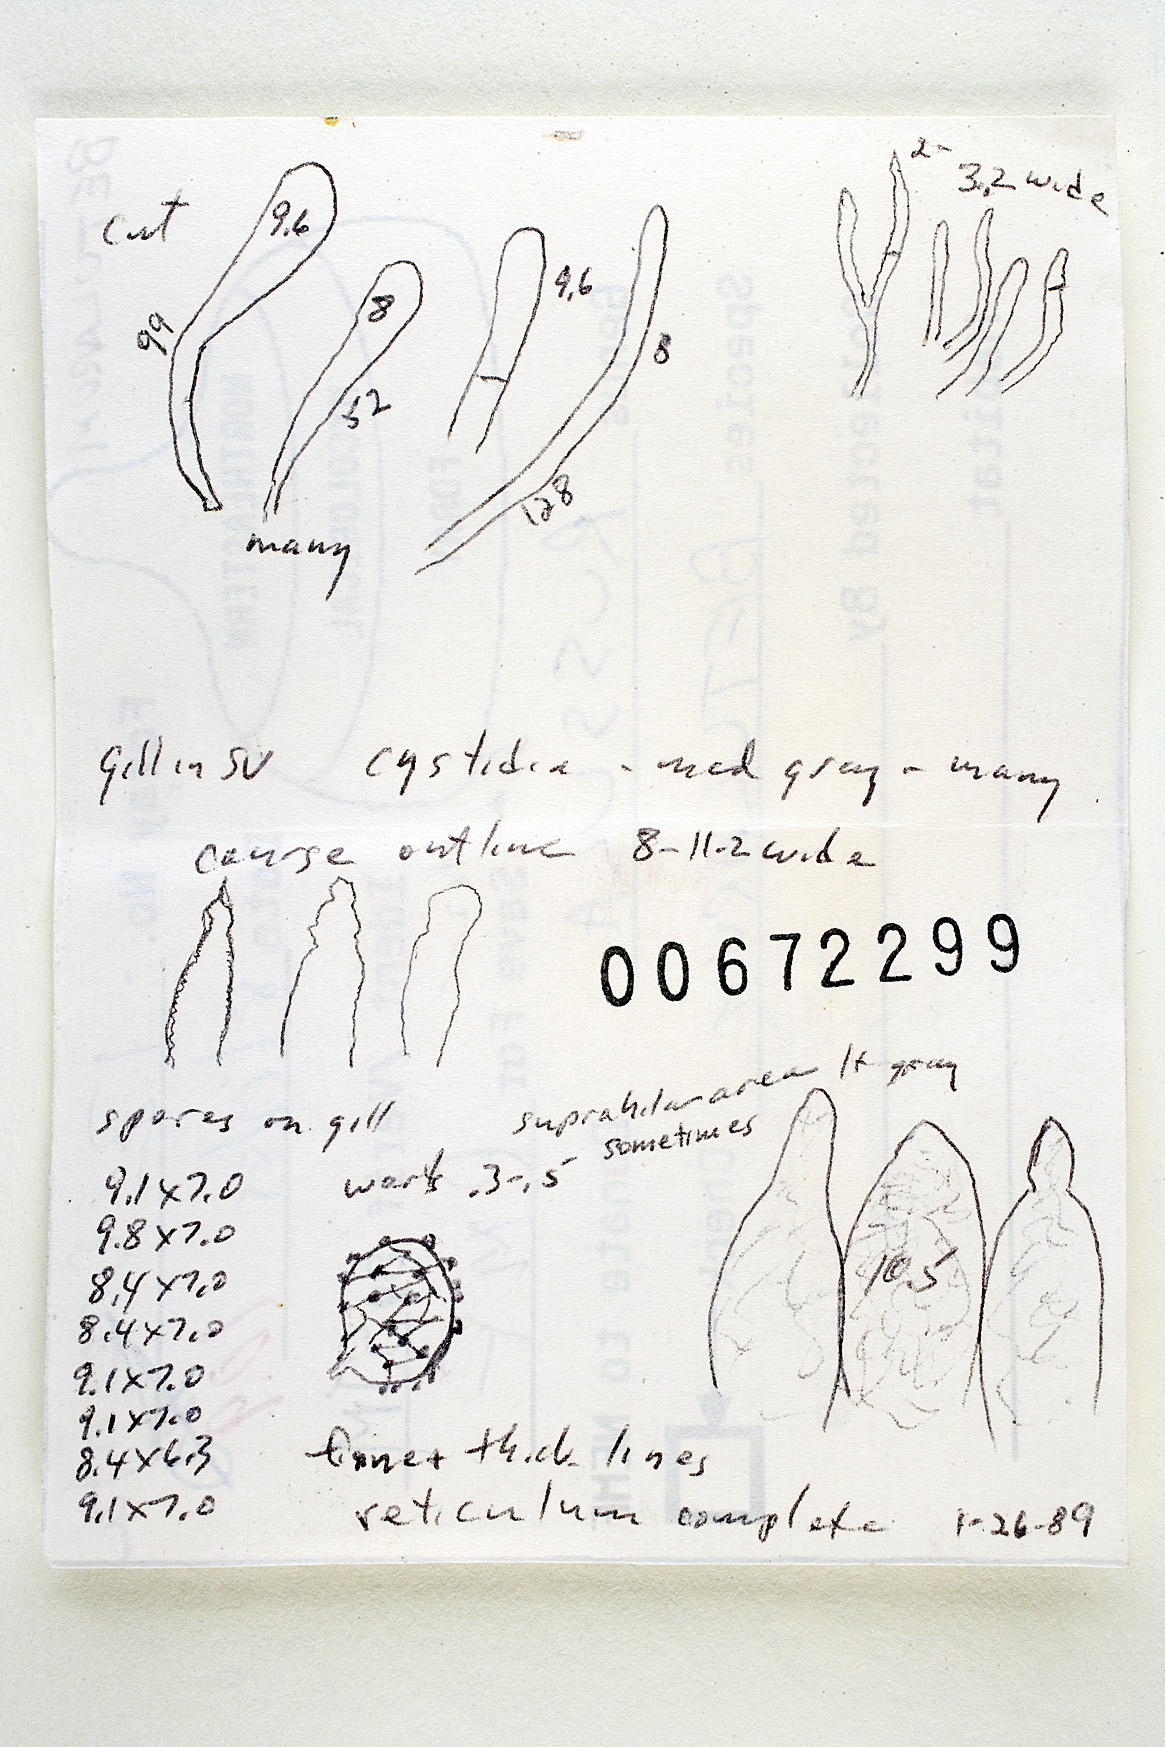 cut
9.6
99
8
52
9.6
8
128
many
2-
3.2 wide
gill in SV cystidia - med gray - many
course outline 8-11.2 wide
00672299
spores on gill
suprahilar area lt gray
sometimes
warts .3-.5
9.1x7.0
9.8x7.0
8.4x7.0
8.4x7.0
9.1x7.0
9.1x7.0
8.4x6.3
9.1x7.0
10.5
fine + thick lines
reticulum complete 1-26-89
Species
Collected By